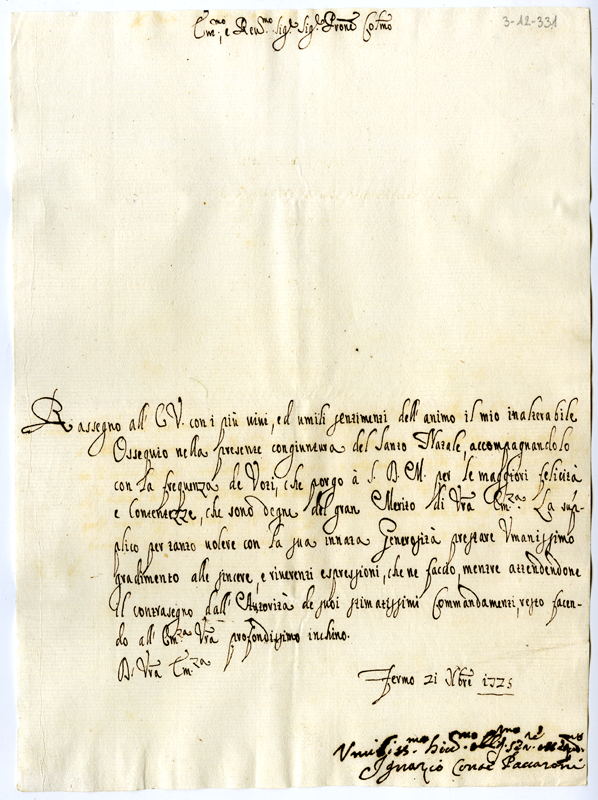 3-12-331
E.mo, e Reu.mo Sig.r Sig.r Prone Colmo
Rassegno all' E.V. con i più uiui, ed umili sentimenti dell' animo il mio inalterabile
Ossequio nella presente congiuntura del Santo Natale, accompagnandolo
con la frequenza de Voti, che porgo à S. D. M. per le maggiori felicità
e Contentezze, che sono degne del gran Merito di Vra Em.za. La sup-
plico per tanto uolere con la sua innata Generosità prestare Vmanissimo
gradimento alle sincere, e riuerenti espressioni, che ne faccio, mentre attendendone
il contrasegno dall' Autorità de suoi stimatissimi Commandamenti, resto facen-
do all' Em.za Vra profondissimo inchino.
D. Vra Em.za
Fermo 21 Xbre 1725
Vmiliss.mo
Ignazio Conte Paccaroni